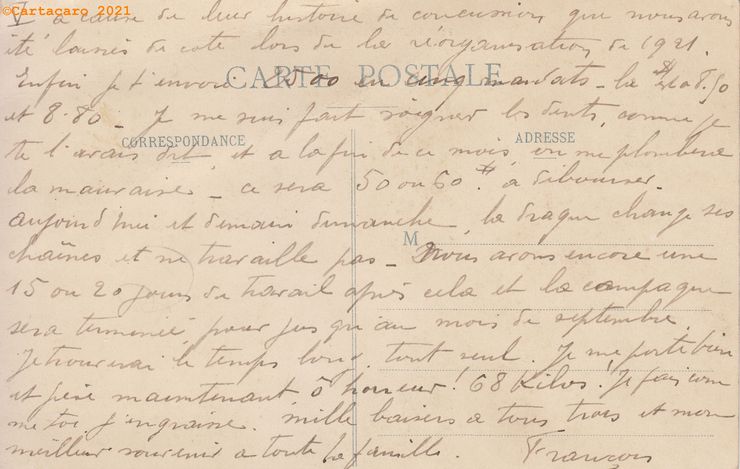 ©Cartacaro 2021
V à cause de leur histoire de concussion que nous avons
été laissés de coté lors de la réorganisation de 1921.
Enfin je t'envoie 2500 en cinq mandats - la $ à 8.50
CARTE POSTALE
et 8.80 - Je me suis fait soigner les dents, comme je
CORRESPONDANCE
ADRESSE
te l'avais dit, et à la fin de ce mois, on me plombera
la mauvaise - ce sera 50 ou 60 $ à débourser.
aujourd'hui et demain dimanche, la drague change ses
M
chaînes et ne travaille pas - Nous avons encore une
15 ou 20 jours de travail après cela et la campagne
sera terminée pour jusqu'au mois de septembre.
Je trouverai le temps long, tout seul. Je me porte bien
et pèse maintenant ô horreur! 68 Kilos! Je fais com
me toi j'engraisse. mille baisers à tous trois et mon
meilleur souvenir à toute la famille. François